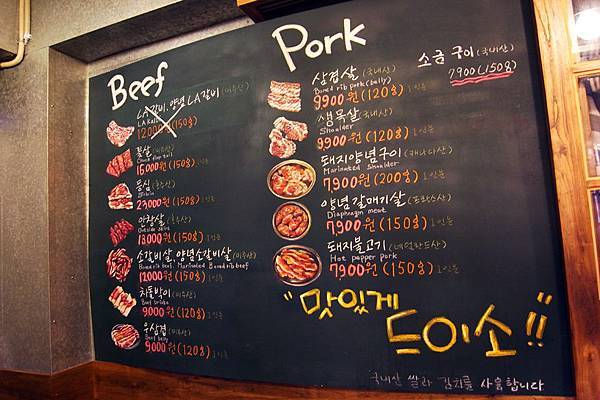 Beef
LA갈비, 양념 LA갈비 (미국산)
LA Kalbi
12000원 (150g)
꽃살 (미국산)
Chuck flap tail
16000원 (150g) 1인분
등심 (호주산)
Sirloin
23000원 (150g) 1인분
안창살 (호주산)
Outside skirt
18000원 (150g) 1인분
소갈비살, 양념소갈비살 (미국산)
Boned rib beef, Marinated Boned rib beef
12000원 (150g) 1인분
차돌박이 (미국산)
Beef brisket
9000원 (120g) 1인분
우삼겹 (미국산)
Beef belly
9000원 (120g) 1인분
Pork
삼겹살 (국내산)
Boned rib pork (belly)
9900원 (120g) 1인분
생목살 (국내산)
Shoulder
9900원 (120g) 1인분
돼지양념구이 (캐나다산)
Marinated Shoulder
7900원 (200g) 1인분
양념 갈매기살 (프랑스산)
Diaphragm meat
7900원 (150g) 1인분
돼지불고기 (네덜란드산)
Hot papper pork
7900원 (150g) 1인분
소금 구이 (국내산)
7900 (150g)
"맛있게
드이소!!"
국내산 쌀과 김치를 사용합니다